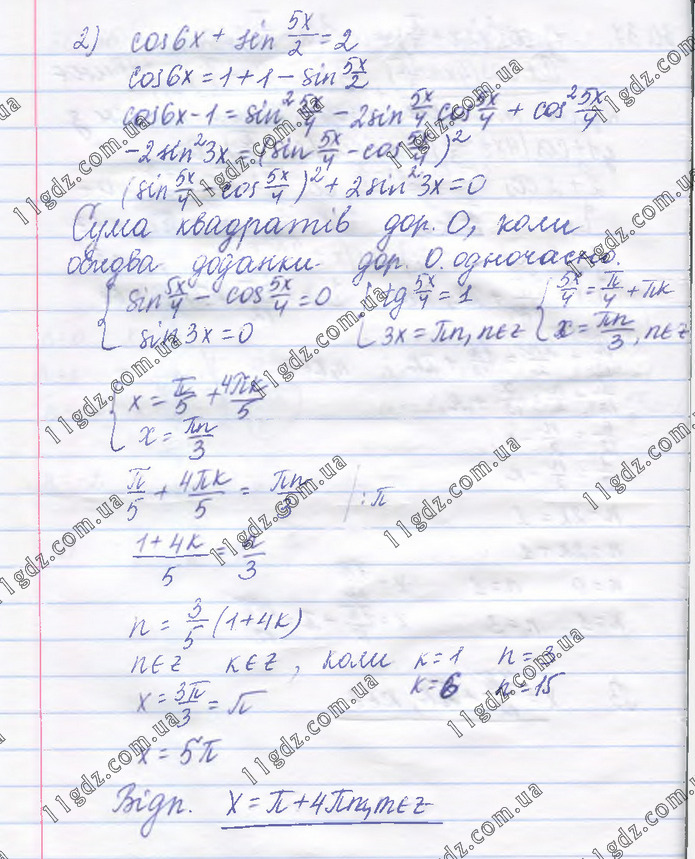 2) cos6x + sin 5x/2 = 2
cos6x = 1 + 1 - sin 5x/2
cos6x - 1 = sin² 5x/4 - 2sin 5x/4 cos 5x/4 + cos² 5x/4
-2sin²3x = (sin 5x/4 - cos 5x/4)²
(sin 5x/4 - cos 5x/4)² + 2sin²3x = 0
Сума квадратів дор. 0, коли
обидва доданки дор. 0 одночасно.
{ sin 5x/4 - cos 5x/4 = 0 { tg 5x/4 = 1 { 5x/4 = π/4 + πk
sin 3x = 0 3x = πn, n∈z x = πn/3, n∈z
{ x = π/5 + 4πk/5
x = πn/3
π/5 + 4πk/5 = πn/3 | :π
(1+4k)/5 = n/3
n = 3/5 (1+4k)
n∈z k∈z, коли k=1 n=3
k=6 n=15
x = 3π/3 = π
x = 5π
Відп. x = π + 4πm, m∈z
11gdz.com.ua